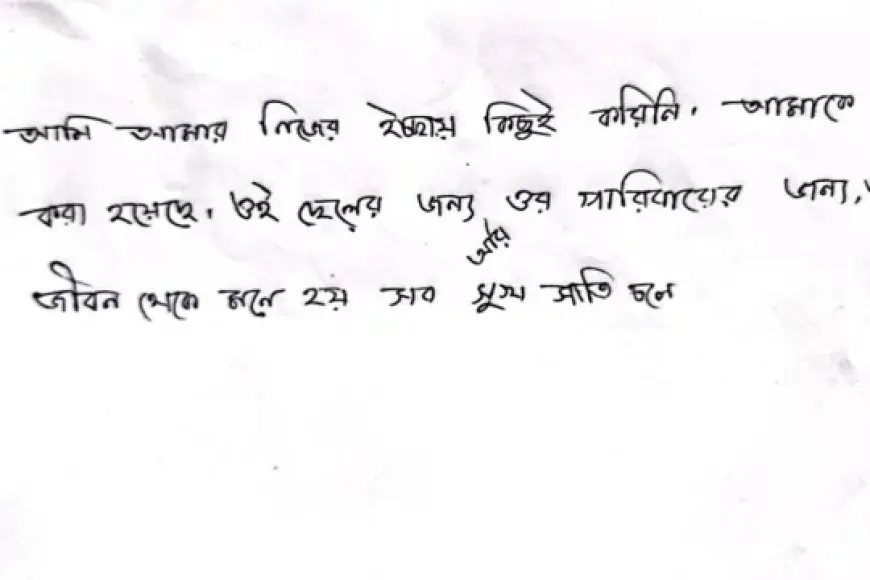 আমি আমার নিজের ইচ্ছায় কিছুই করিনি. আমাকে
করা হয়েছে. ওই ছেলের জন্য ওর পারিবারের জন্য,
আর
জীবন থেকে মনে হয় সব সুখ সাতি চলে